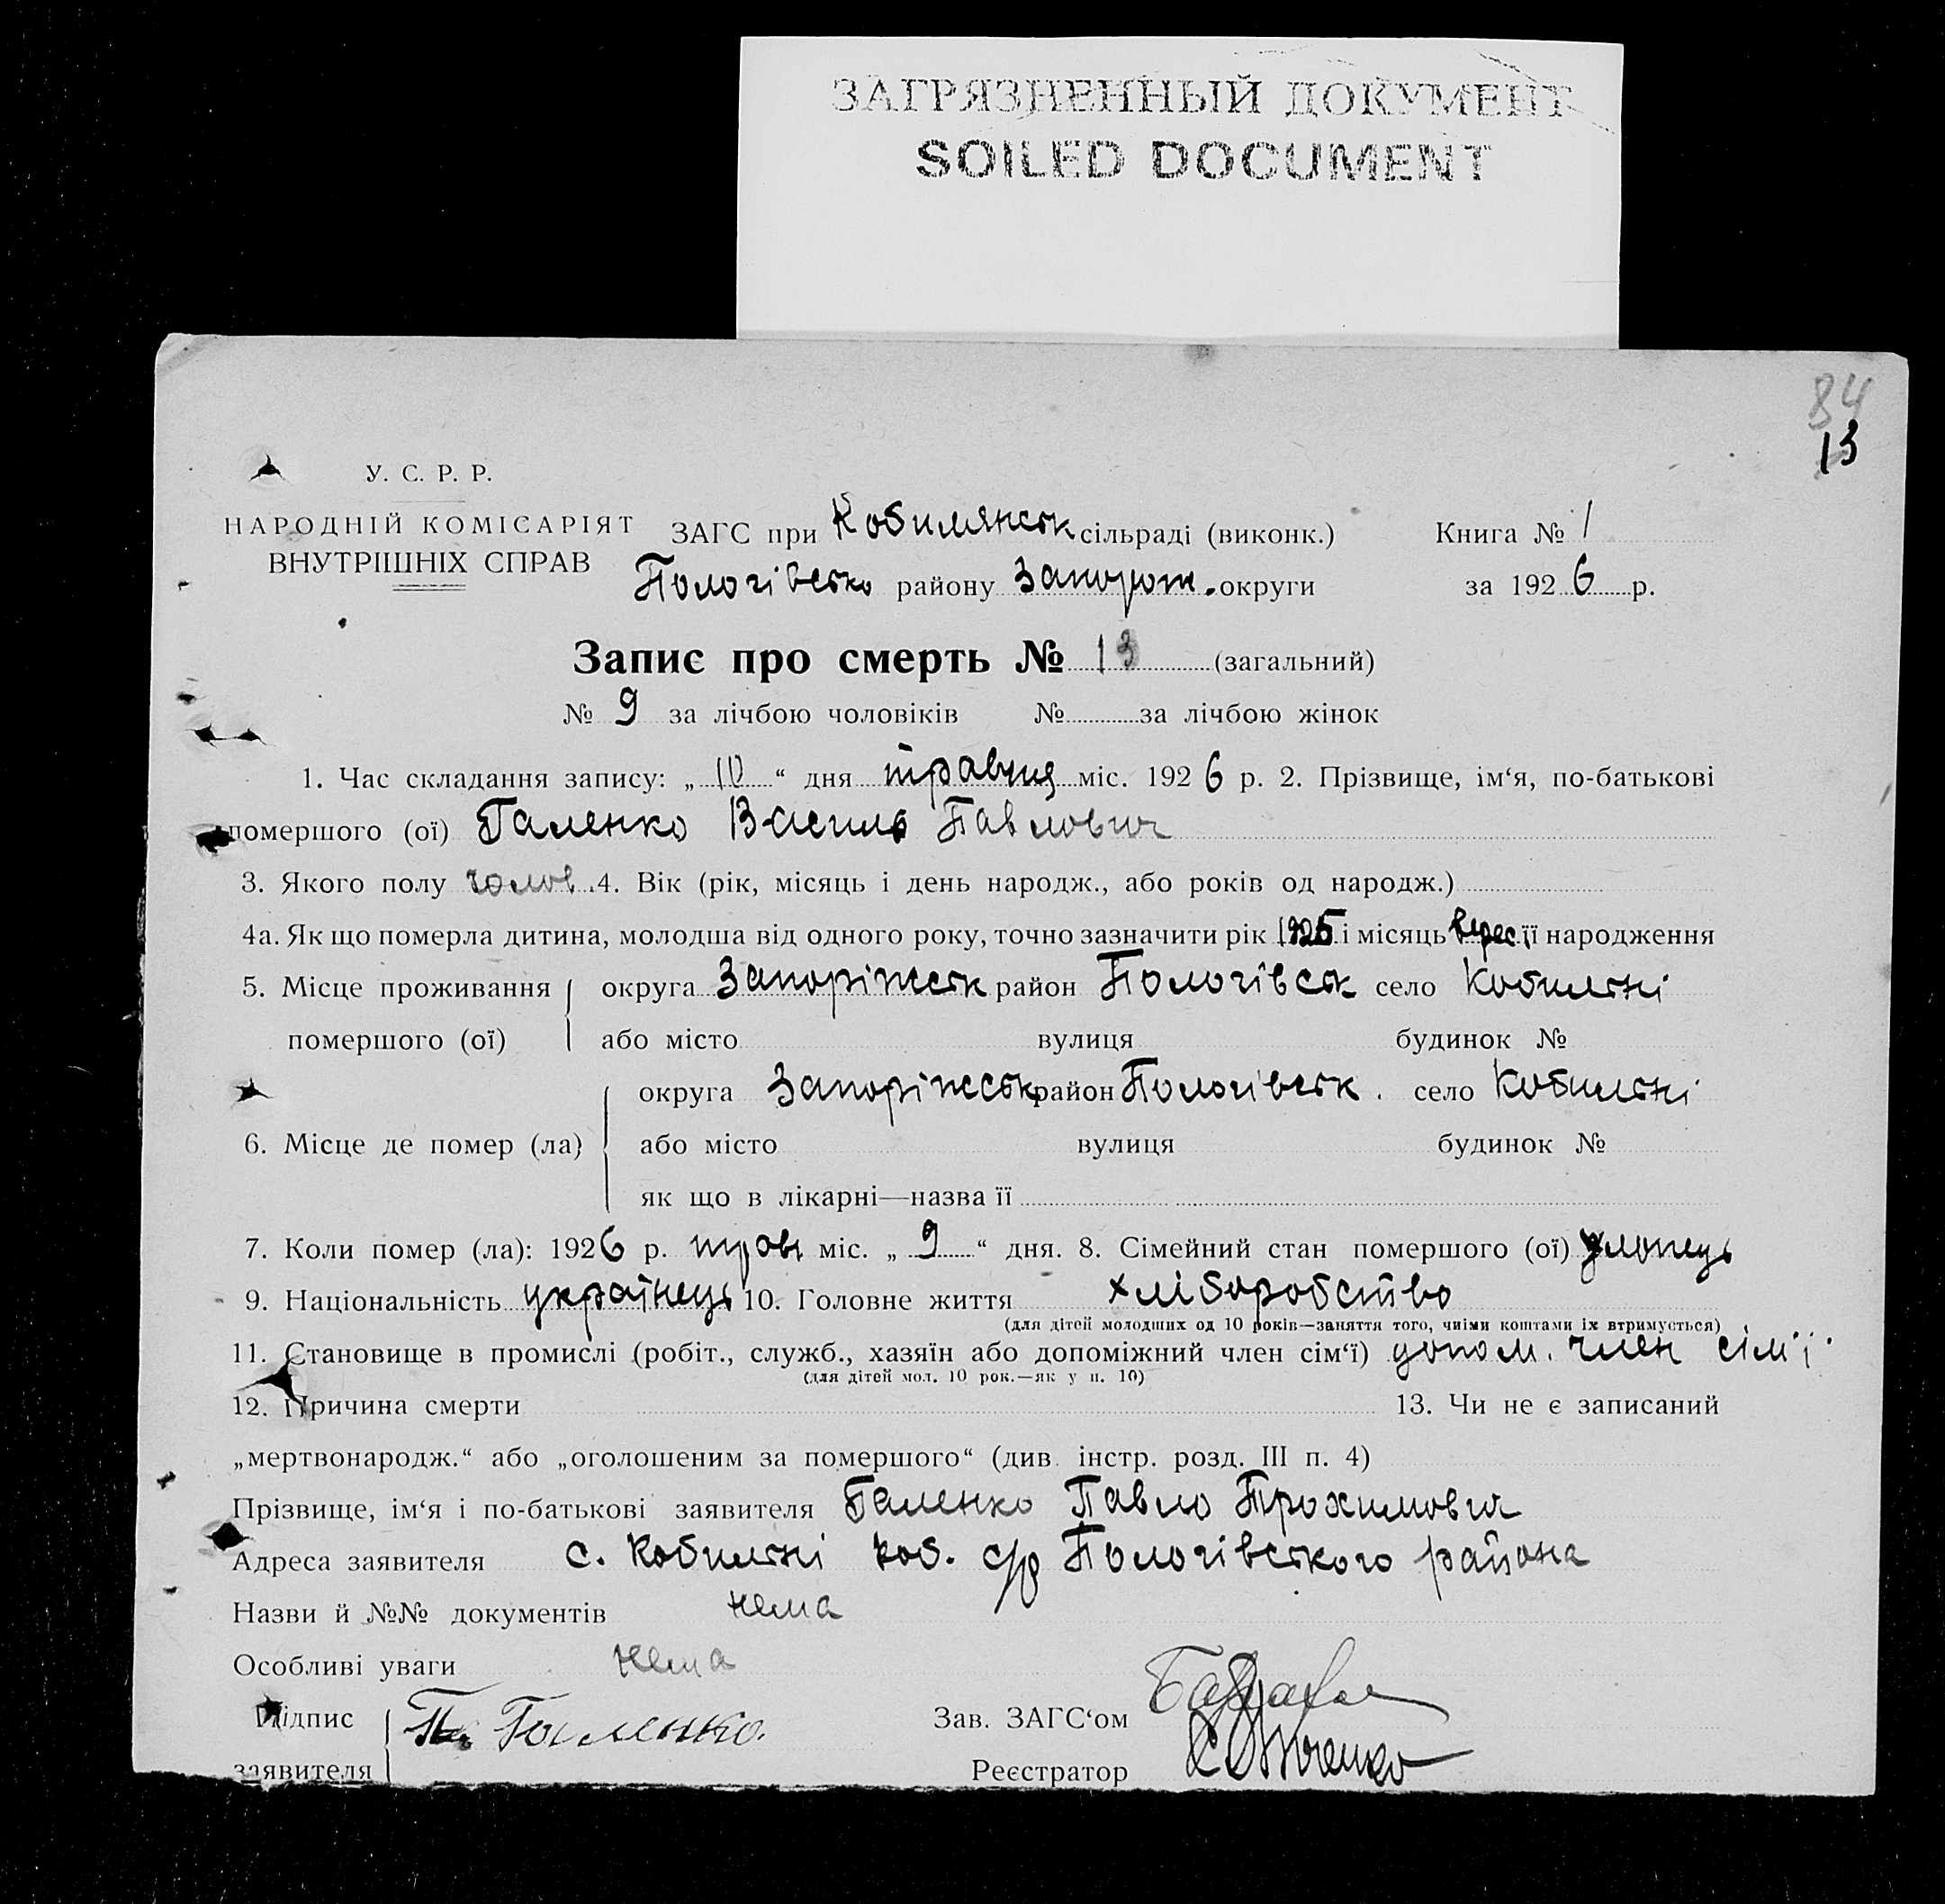 ЗАГРЯЗНЕННЫЙ ДОКУМЕНТ
SOILED DOCUMENT
84
13
У. С. Р. Р.
НАРОДНІЙ КОМІСАРІЯТ
ВНУТРІШНІХ СПРАВ
ЗАГС при Кобилянськ сільраді (виконк.) Книга № 1
Пологівсько району Запорож. округи за 1926 р.
Запис про смерть № 13 (загальний)
№ 9 за лічбою чоловіків № за лічбою жінок
1. Час складання запису: „10“ дня травня міс. 1926 р. 2. Прізвище, ім‘я, по-батькові
помершого (ої) Галенко Василь Павлович
3. Якого полу чолов. 4. Вік (рік, місяць і день народж., або років од народж.)
4а. Як що померла дитина, молодша від одного року, точно зазначити рік 1925 і місяць верес. її народження
5. Місце проживання округа Запоріжськ район Пологівськ село Кобильні
помершого (ої) або місто вулиця будинок №
округа Запоріжськ район Пологівськ. село Кобильні
6. Місце де помер (ла) або місто вулиця будинок №
як що в лікарні—назва її
7. Коли помер (ла): 1926 р. трав міс. „9“ дня. 8. Сімейний стан помершого (ої) хлопець
9. Національність українець 10. Головне життя хліборобство
(для дітей молодших од 10 років—заняття того, чиїми коштами їх втримується)
11. Становище в промислі (робіт., служб., хазяїн або допоміжний член сім‘ї) допом. член сім'ї
(для дітей мол. 10 рок.—як у п. 10)
12. Причина смерти 13. Чи не є записаний
„мертвонародж.“ або „оголошеним за помершого“ (див. інстр. розд. III п. 4)
Прізвище, ім‘я і по-батькові заявителя Галенко Павло Трохимович
Адреса заявителя с. Кобильні Коб. с/р Пологівського района
Назви й №№ документів нема
Особливі уваги нема
Підпис
заявителя
Галенко.
Зав. ЗАГС‘ом
Реєстратор